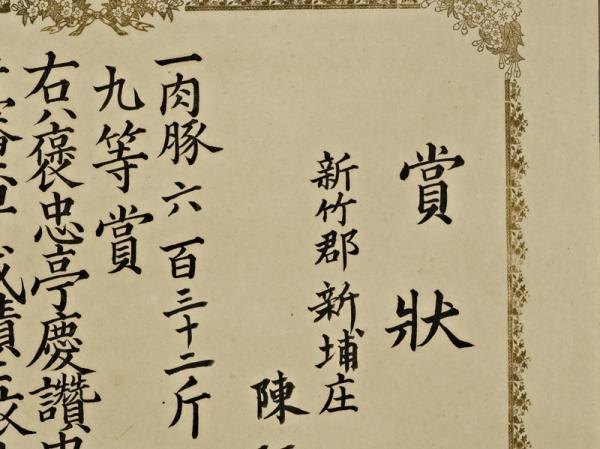 賞狀
新竹郡新埔庄
陳
一肉豚六百三十二斤
九等賞
右八褒忠亭慶讚中